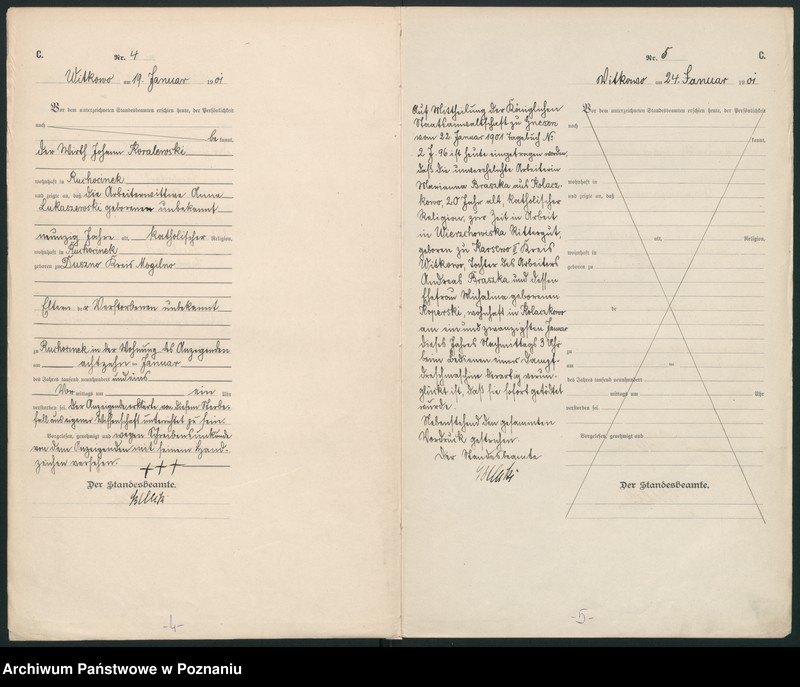 C.
Nr. 4
Witkowo am 19. Januar 1901
Vor dem unterzeichneten Standesbeamten erschien heute, der Persönlichkeit
nach
be kannt,
der Wirth Johann Koralewski
wohnhaft in Ruchocinek
und zeigte an, daß die Arbeiterwittwe Anna
Lukaszewski geborenen unbekannt
neunzig Jahre alt, katholischer Religion,
wohnhaft in Ruchocinek
geboren zu Duszno Kreis Mogilno
Eltern der Verstorbenen unbekannt
zu Ruchocinek in der Wohnung des Anzeigenden
am achtzehn ten Januar
des Jahres tausend neunhundert und eins
Vor mittags um ein Uhr
verstorben sei. Der Anzeigende erklärte von diesem Sterbe-
fall aus eigener Wissenschaft unterrichtet zu sein.
Vorgelesen, genehmigt und wegen Schreibensunkunde
von dem Anzeigenden mit seinem Hand-
zeichen versehen.
+++
Der Standesbeamte.
-4-
Nr. 5
C.
Witkowo am 24. Januar 1901
Auf Mittheilung der Königlichen
Staatsanwaltschaft zu Gnesen
vom 22. Januar 1901 Tagebuch No
2 J. 96 ist heute eingetragen worden,
daß die unverehelichte Arbeiterin
Marianna Braszka aus Kolacz-
kowo, 20 Jahr alt, katholischer
Religion, zur Zeit in Arbeit
in Wierzchowiska Rittergut,
geboren zu Karsewo II Kreis
Witkowo, Tochter des Arbeiters
Andreas Braszka und dessen
Ehefrau Michalina geborenen
Koperski, wohnhaft in Kolaczkowo
am ein und zwanzigsten Januar
dieses Jahres Nachmittags 3 Uhr
beim Bedienen einer Dampf-
dreschmaschine derartig verun-
glückt ist, daß sie sofort getödtet
wurde.
Nebenstehend den gesammten
Vordruck gestrichen.
Der Standesbeamte
Vor dem unterzeichneten Standesbeamten erschien heute, der Persönlichkeit
nach
kannt,
wohnhaft in
und zeigte an, daß
alt, Religion,
wohnhaft in
geboren zu
de
zu
am ten
des Jahres tausend neunhundert
mittags um Uhr
verstorben sei.
Vorgelesen, genehmigt und
Der Standesbeamte.
-5-
Archiwum Państwowe w Poznaniu